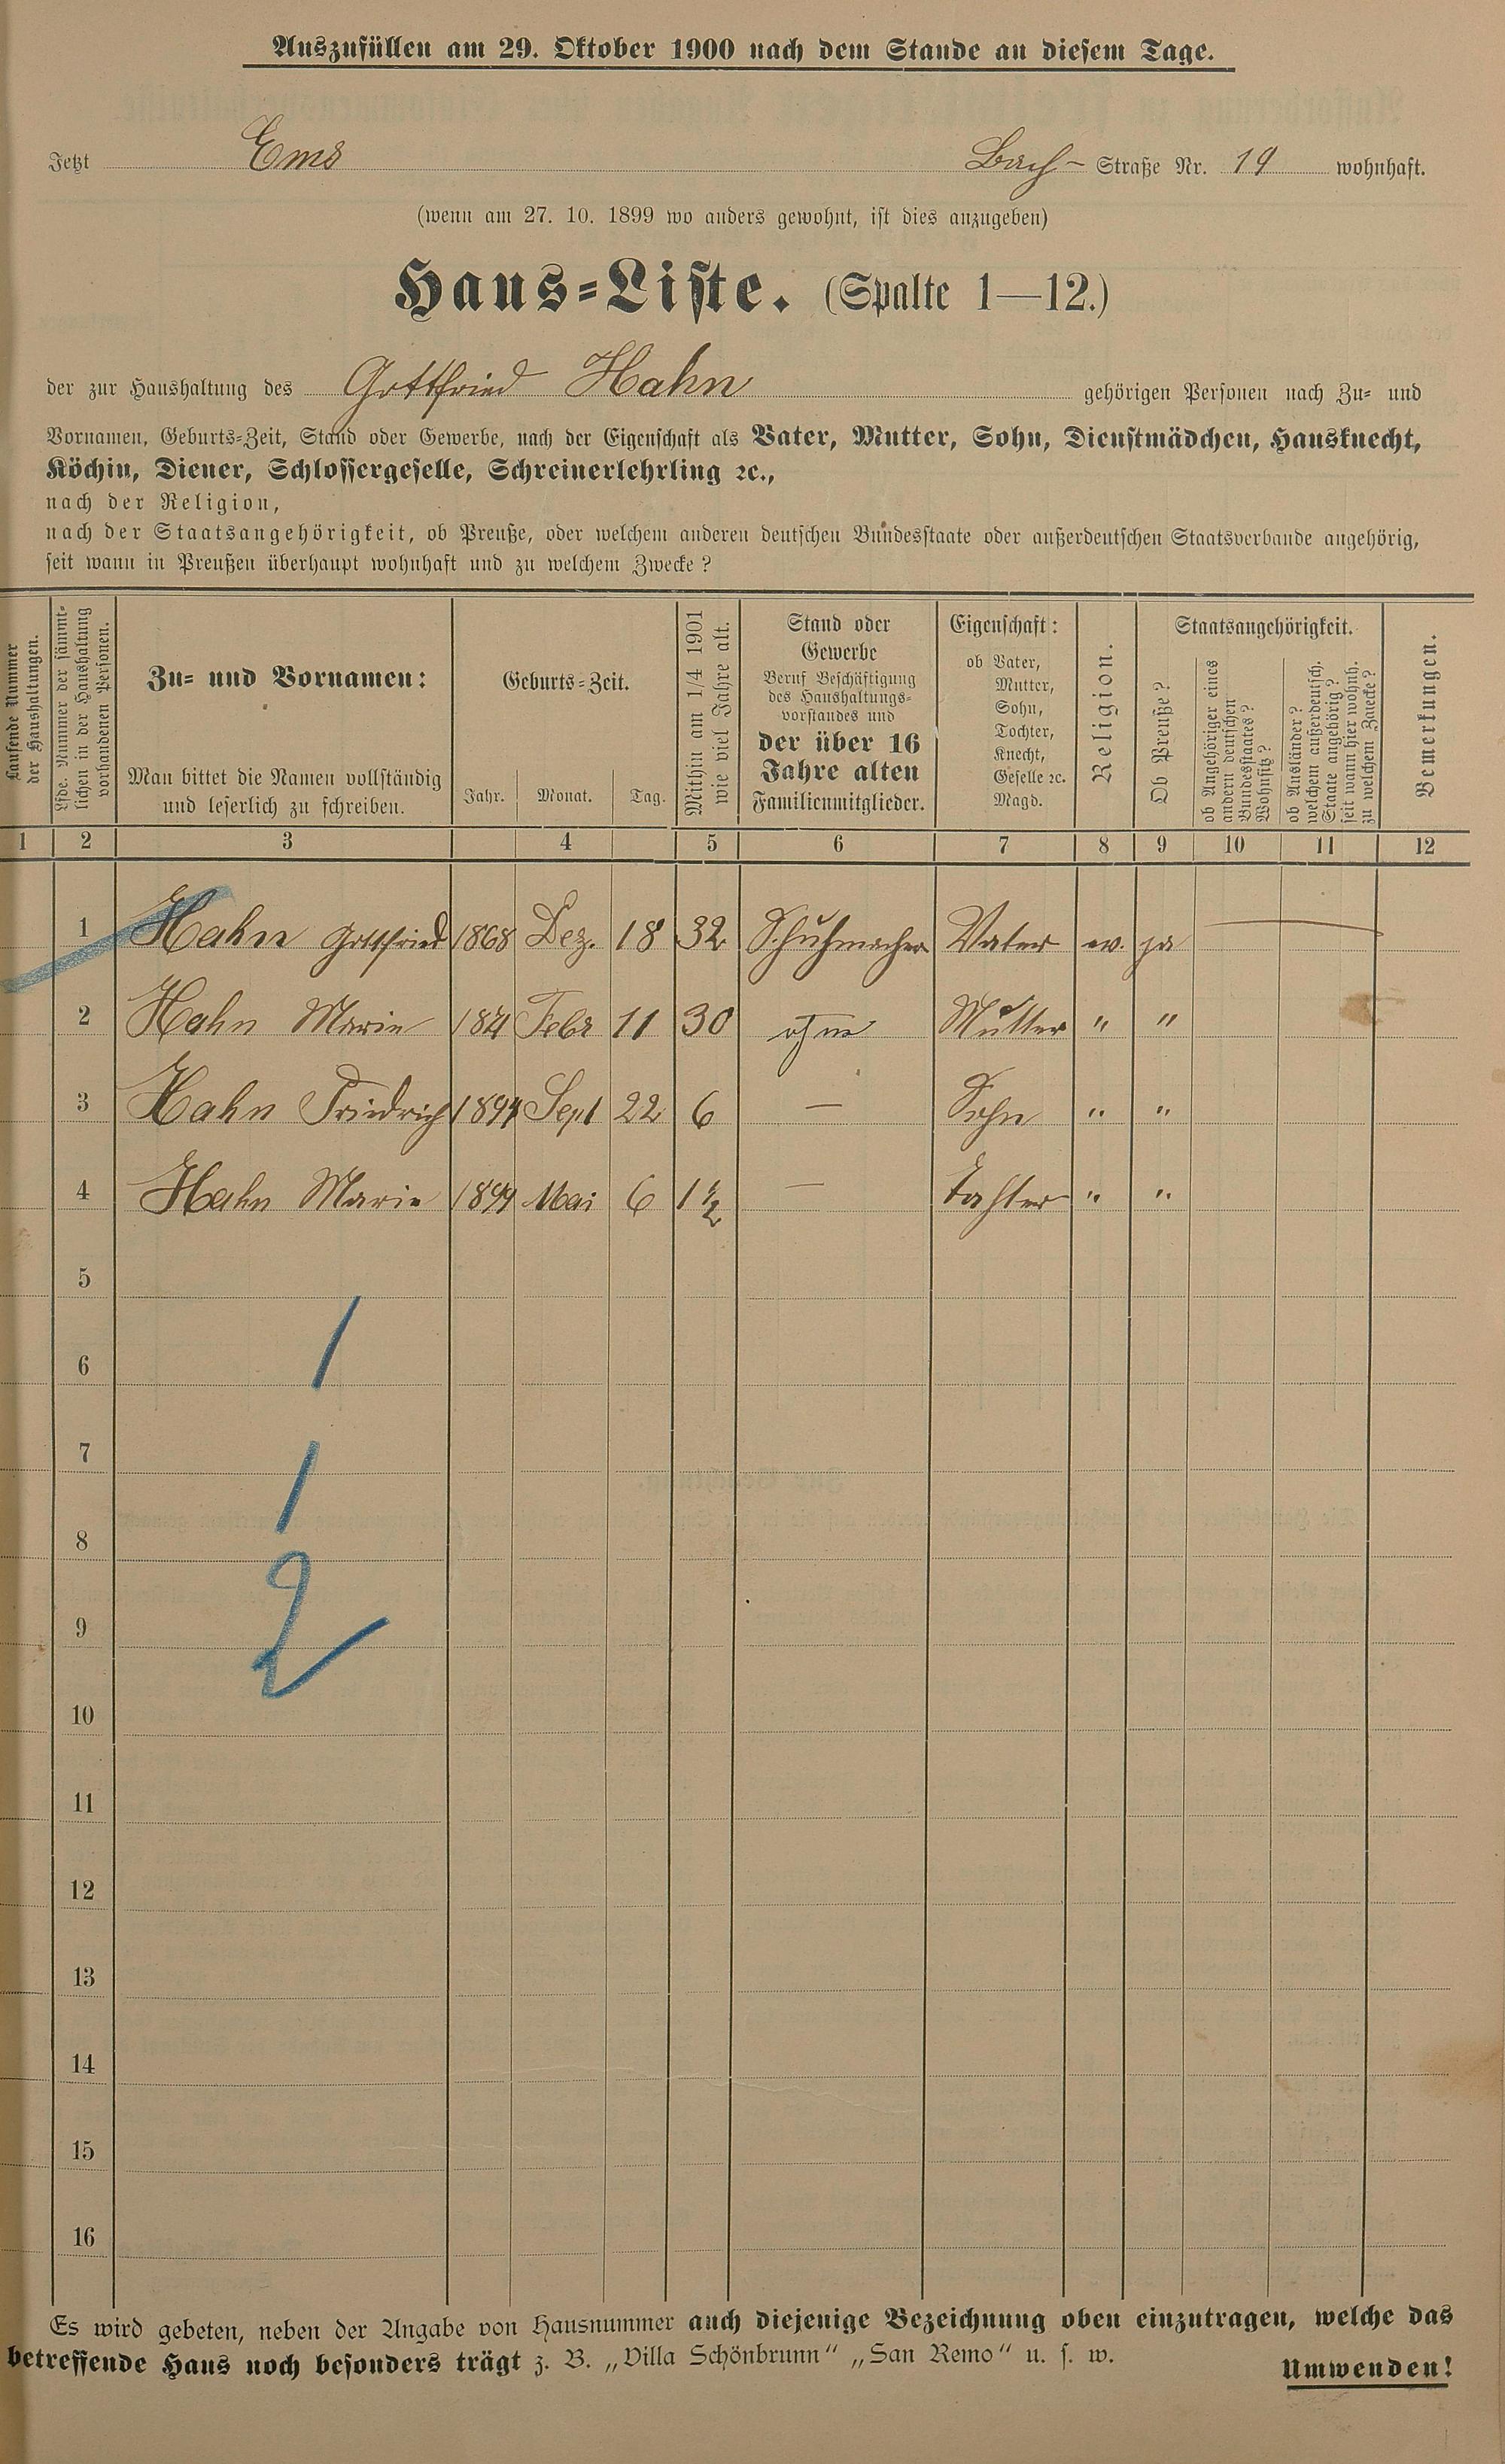 Auszufüllen am 29. Oktober 1900 nach dem Stande an diesem Tage.
Jetzt Ems Bach- Straße Nr. 19 wohnhaft.
(wenn am 27. 10. 1899 wo anders gewohnt, ist dies anzugeben)
Haus-Liste. (Spalte 1—12.)
der zur Haushaltung des Gottfried Hahn gehörigen Personen nach Zu- und
Vornamen, Geburts-Zeit, Stand oder Gewerbe, nach der Eigenschaft als Vater, Mutter, Sohn, Dienstmädchen, Hausknecht,
Köchin, Diener, Schlossergeselle, Schreinerlehrling ꝛc.,
nach der Religion,
nach der Staatsangehörigkeit, ob Preuße, oder welchem anderen deutschen Bundesstaate oder außerdeutschen Staatsverbande angehörig,
seit wann in Preußen überhaupt wohnhaft und zu welchem Zwecke?
Laufende Nummer
der Haushaltungen.
Lfde. Nummer der sämmt-
lichen in der Haushaltung
vorhandenen Personen.
Zu- und Vornamen:
Man bittet die Namen vollständig
und leserlich zu schreiben.
Geburts-Zeit.
Jahr. Monat. Tag.
Mithin am 1/4 1901
wie viel Jahre alt.
Stand oder
Gewerbe
Beruf Beschäftigung
des Haushaltungs-
vorstandes und
der über 16
Jahre alten
Familienmitglieder.
Eigenschaft:
ob Vater,
Mutter,
Sohn,
Tochter,
Knecht,
Geselle ꝛc.
Magd.
Religion.
Staatsangehörigkeit.
Ob Preuße?
ob Angehöriger eines
andern deutschen
Bundesstaates?
Wohnsitz?
ob Ausländer?
welchem außerdeutsch.
Staate angehörig?
seit wann hier wohnh.
zu welchem Zwecke?
Bemerkungen.
1 2 3 4 5 6 7 8 9 10 11 12
1 Hahn Gottfried 1868 Dez. 18 32 Schuhmacher Vater ev. ja —
2 Hahn Marie 1871 Febr 11 30 ohne Mutter " "
3 Hahn Friedrich 1894 Sept 22 6 — Sohn " "
4 Hahn Marie 1899 Mai 6 1½ — Tochter " "
5
6
7
8
9
10
11
12
13
14
15
16
1
1
2
Es wird gebeten, neben der Angabe von Hausnummer auch diejenige Bezeichnung oben einzutragen, welche das
betreffende Haus noch besonders trägt z. B. „Villa Schönbrunn“ „San Remo“ u. s. w.
Umwenden!